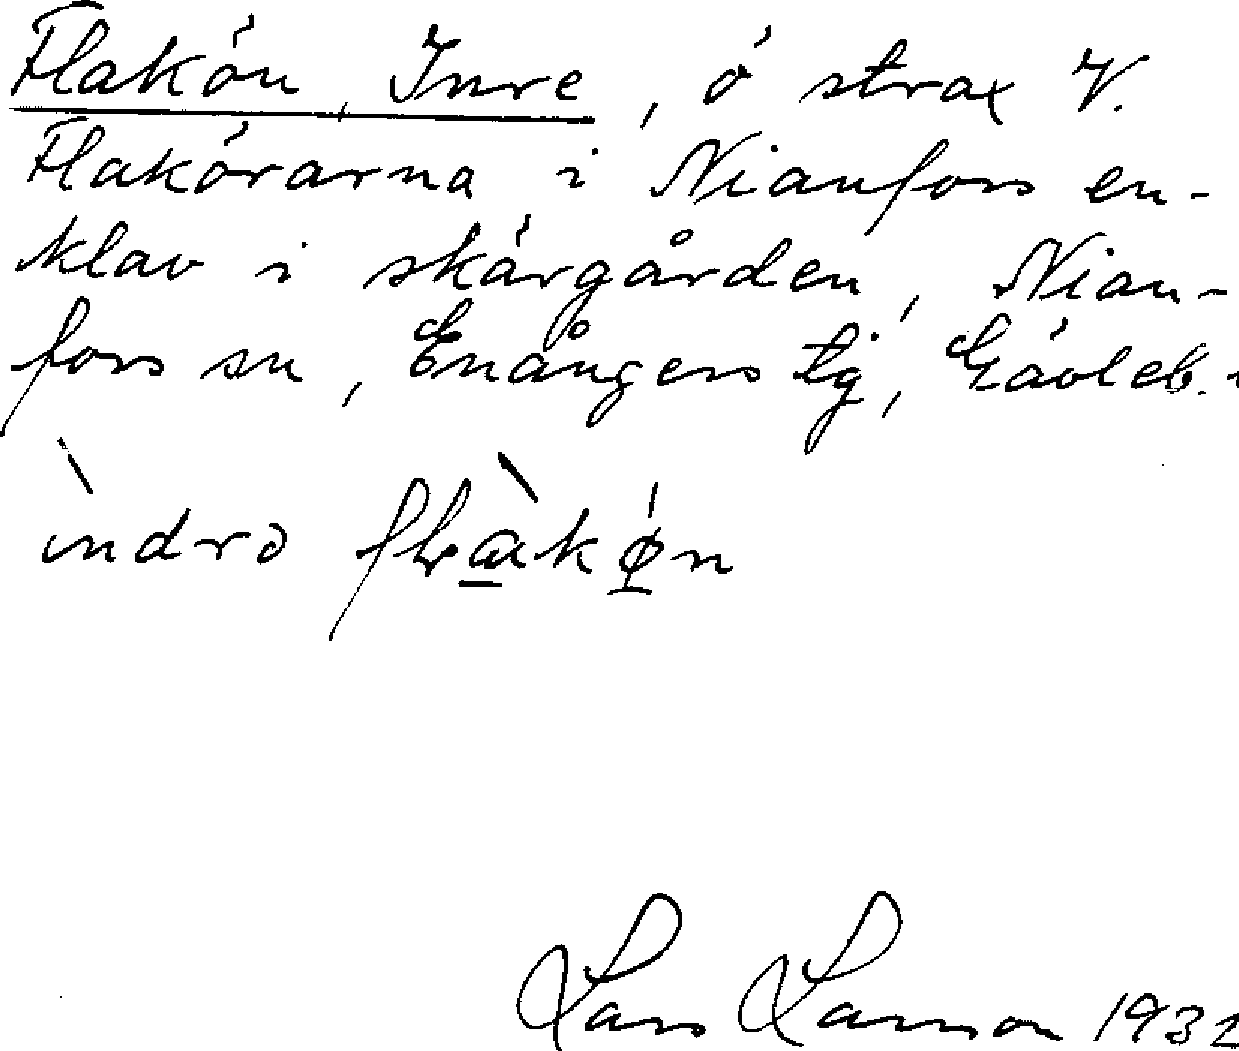 Flakön, Inre, ö strax V.
Flakörarna i Nianfors en-
klav i skärgården, Nian-
fors sn, Enångers tg, Gävleb.
indrə flakøn
Lars Larsson 1932